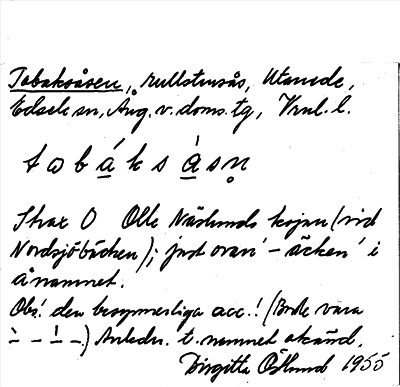 Tobaksåsen, rullstensås, Utanede,
Edsele sn, Ång. v. doms. tg, Vnl. l.
t ɷ b á̲ k s à̲ s n̥
Strax O Olle Näslunds kojan (vid
Nordsjöbäcken); just ovan ' - äcken ' i
ånamnet.
Obs! den besynnerliga acc.! (Borde vara
` – – ! –) Anledn. t. namnet okänd.
Birgitta Östlund 1955